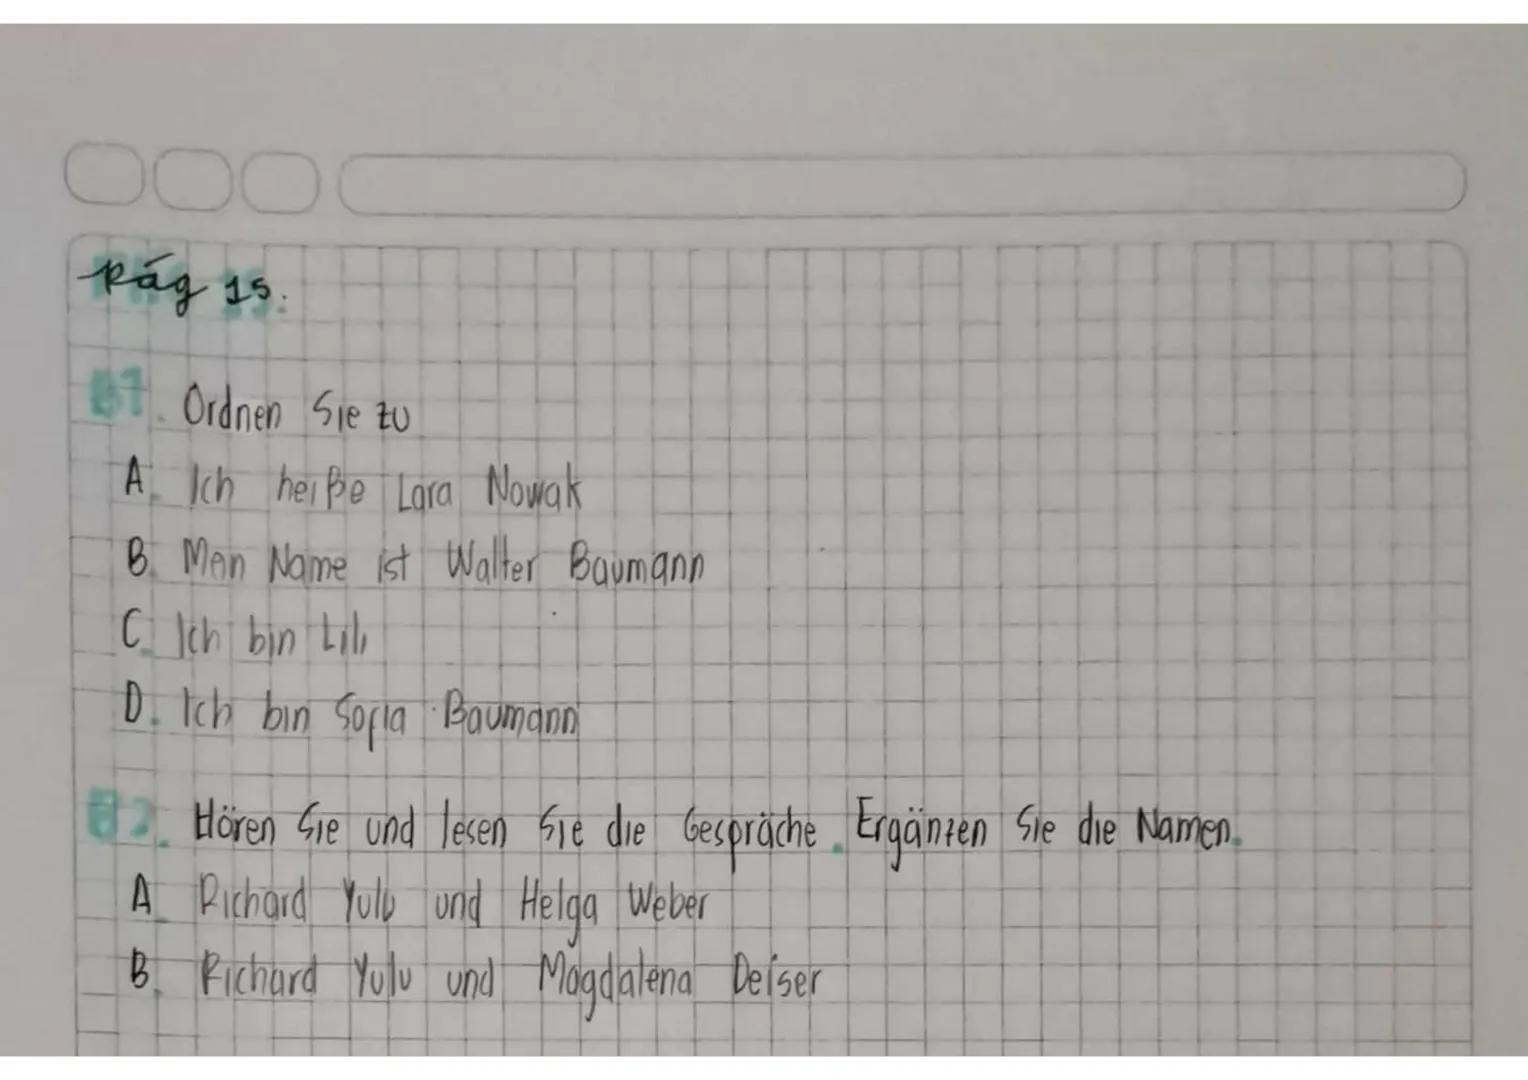 Pág 15.
B1. Ordnen Sie zu
A. Ich heiße Lara Nowak
B. Mein Name ist Walter Baumann
C. Ich bin Lili
D. Ich bin Sofia Baumann
B2. Hören Sie und lesen Sie die Gespräche. Ergänzen Sie die Namen.
A. Richard Yulu und Helga Weber
B. Richard Yulu und Magdalena Deiser